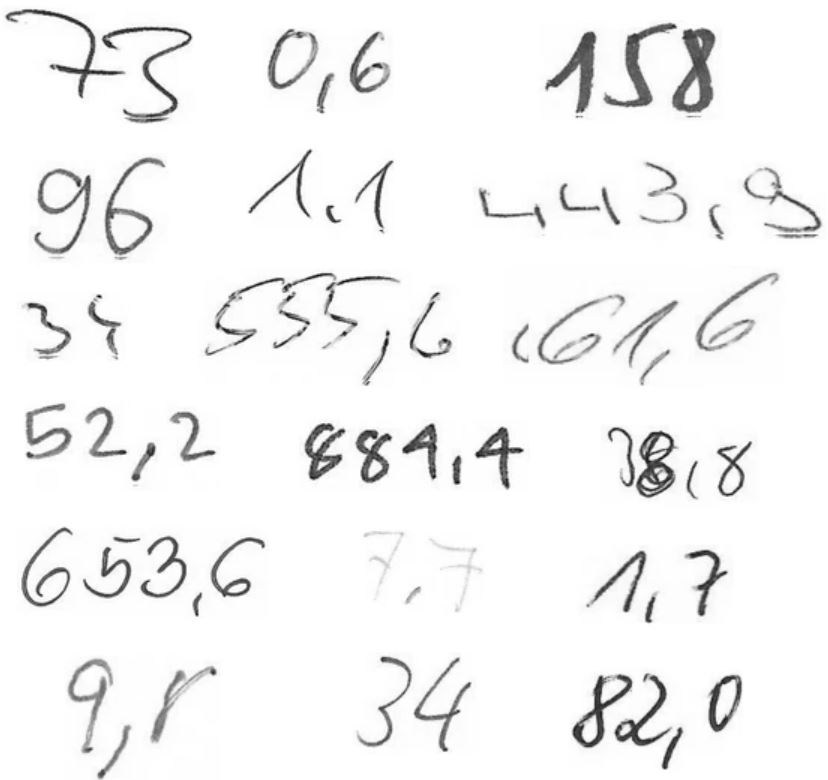 73 0,6 158
96 1,1 443,9
34 555,6 61,6
52,2 884,4 38,8
653,6 7,7 1,7
9,8 34 82,0